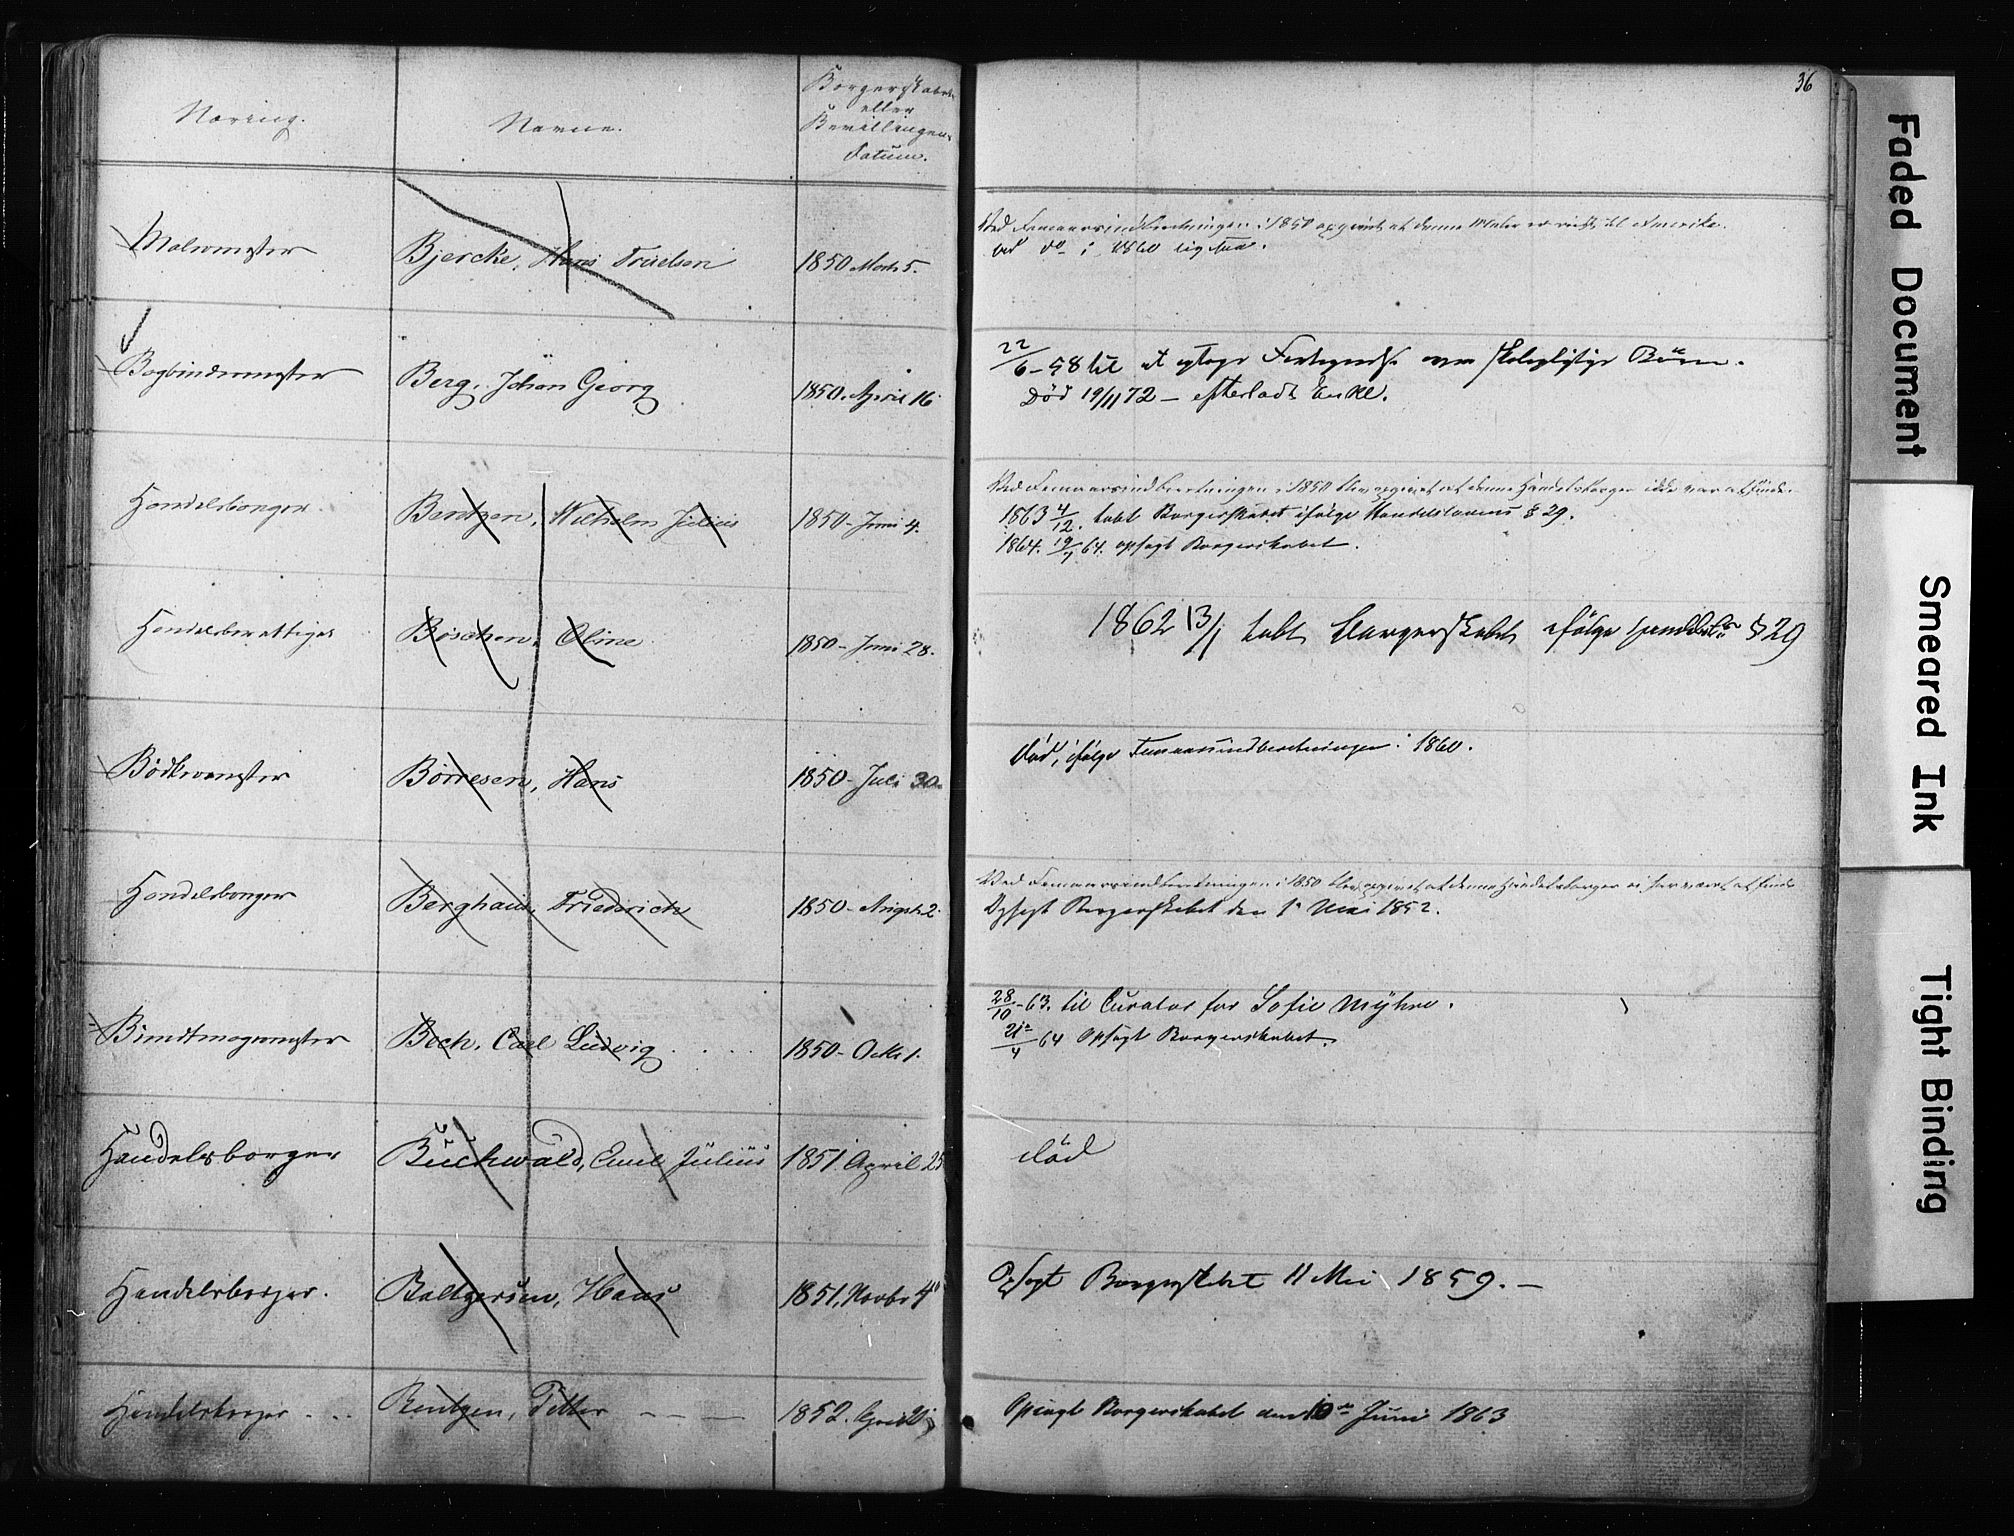 Næring.
Navne.
Borgerskabets
eller
Bevillingens
Datum.
36
Malermester
Bjercke, Hans Truelsen
1850 Marts 5.
Ved Femaarsindberetningen i 1850 opgivet at denne Maler er reist til Amerika.
ved do i 1860 ligesaa.
Bogbindermester
Berg, Johan Georg
1850. April 16
22/6-58 til at optage Fortegnelse over skolepligtige Børn.
Død 19/11 72 - efterladt Enke.
Handelsborger
Bentzen, Wilhelm Julius
1850 - Juni 4.
Ved Femaarsindberetningen i 1850 blev opgivet at denne Handelsborger ikke var at finde.
1863 4/12. tabt Borgerskabet ifølge Handelslovens § 29.
1864. 19/7 64. opsagt Borgerskabet.
Handelsberettiget
Bøschen, Oline
1850 - Juni 28.
1862 13/1 tabt Borgerskabet ifølge Handelsl. § 29
Bødkermester
Børresen, Hans
1850 - Juli 30.
Død, ifølge Femaarsindberetningen i 1860.
Handelsborger
Berghaus, Friederich
1850 - Augst. 2.
Ved Femaarsindberetningen i 1850 blev opgivet at denne Handelsborger ei har været at finde
Opsagt Borgerskabet den 1 Mai 1852.
Bundtmagermester
Boch, Carl Ludvig
1850 - Octbr 1.
28/10-63. til Curator for Sofie Myhre.
21/4 64 Opsagt Borgerskabet.
Handelsborger
Buchwald, Emil Julius
1851 April 25
død
Handelsborger.
Baltzersen, Hans
1851, Novbr 4
Opsagt Borgerskabet 11 Mai 1859. -
Handelsborger
Bentzen, Petter
1852.
Opsagt Borgerskabet den 10de Juni 1863
Faded Document
Smeared Ink
Tight Binding